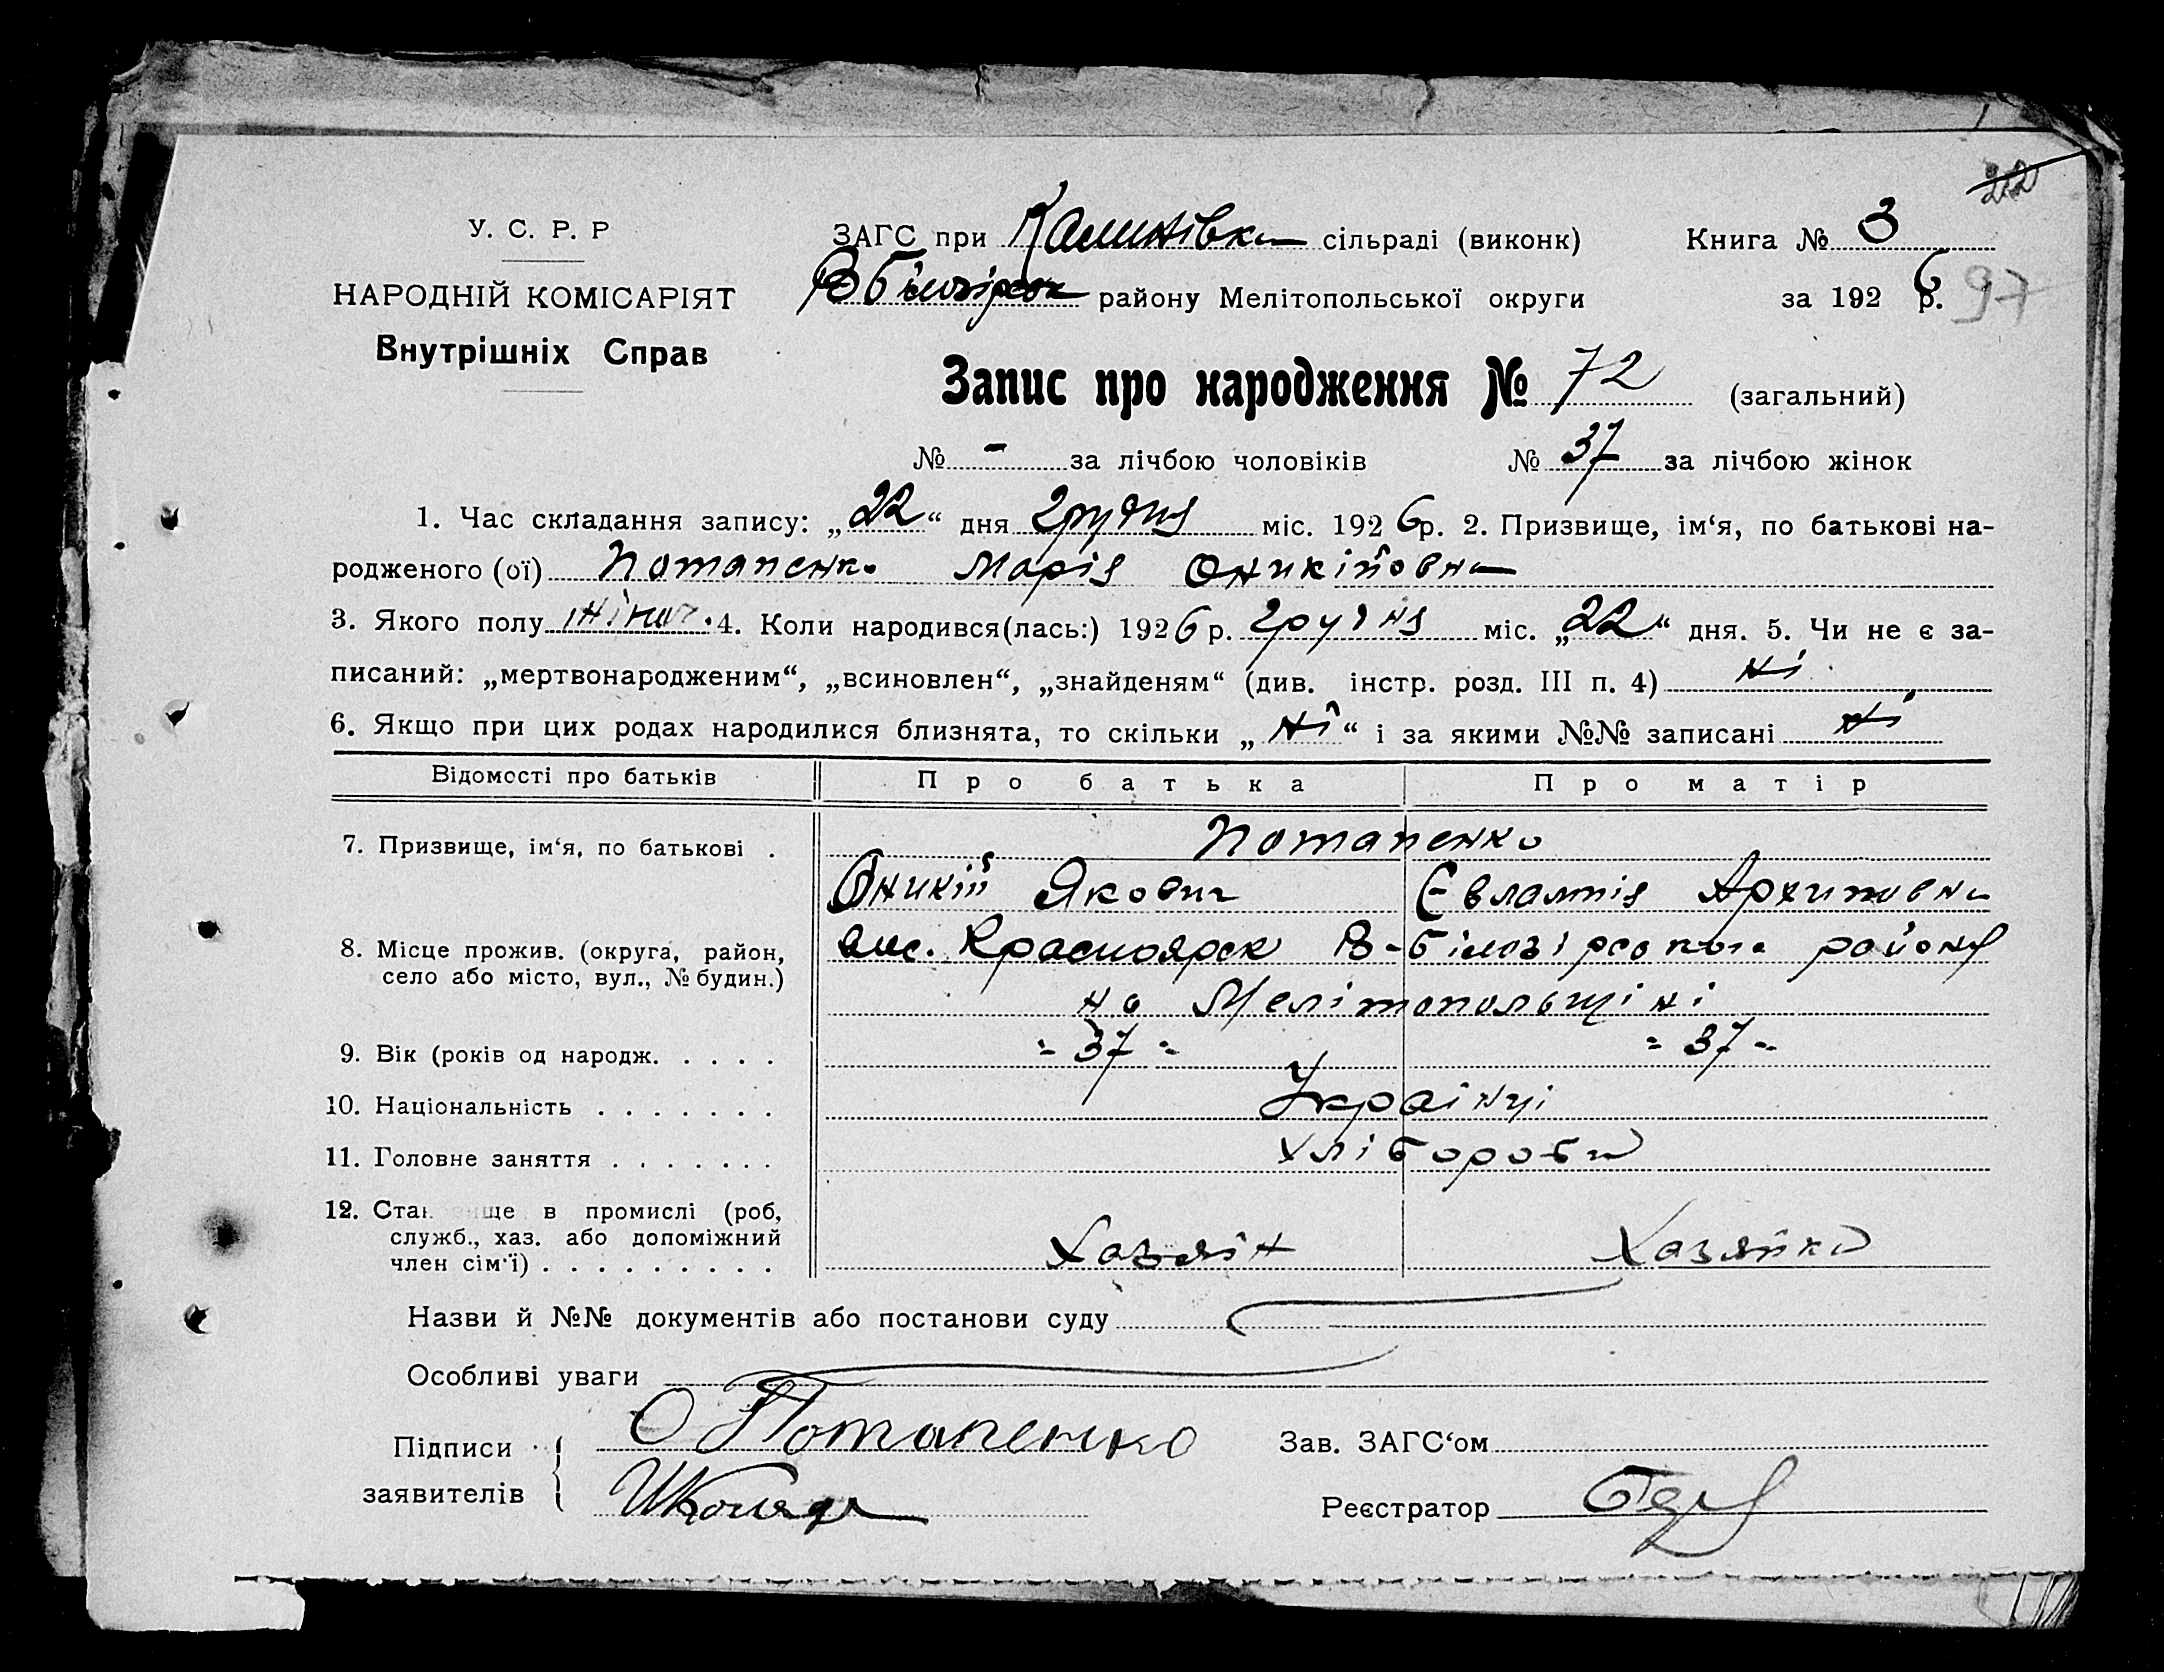 22
У. С. Р. Р
НАРОДНІЙ КОМІСАРІЯТ
Внутрішніх Справ
ЗАГС при Калинівка сільраді (виконк) Книга № 3
району Мелітопольської округи за 192 6 р. 97
Запис про народження № 72 (загальний)
№ - за лічбою чоловіків № 37 за лічбою жінок
1. Час складання запису: „22“ дня грудня міс. 1926р. 2. Призвище, ім‘я, по батькові на-
родженого (ої) Потапенко Марія Оникіївна
3. Якого полу жіноч. 4. Коли народився(лась:) 1926 р. грудня міс. „22“ дня. 5. Чи не є за-
писаний: „мертвонародженим“, „всиновлен“, „знайденям“ (див. інстр. розд. III п. 4) ні
6. Якщо при цих родах народилися близнята, то скільки „ні“ і за якими №№ записані ні
Відомості про батьків Про батька Про матір
7. Призвище, ім‘я, по батькові . Потапенко
Оникій Якович Євлампія Архиповна
8. Місце прожив. (округа, район, село або місто, вул., № будин.) Красноярск В-Білозірського району
на Мелітопольщіні
9. Вік (років од народж. . . . . = 37 = = 37 =
10. Національність . . . . . . . Українці
11. Головне заняття . . . . . . . Хлібороби
12. Ста ще в промислі (роб,
служб., хаз. або допоміжний
член сім‘ї) . . . . . . . . . Хазяїн Хазяйка
Назви й №№ документів або постанови суду
Особливі уваги
Підписи О Потапенко Зав. ЗАГС‘ом
заявителів Реєстратор